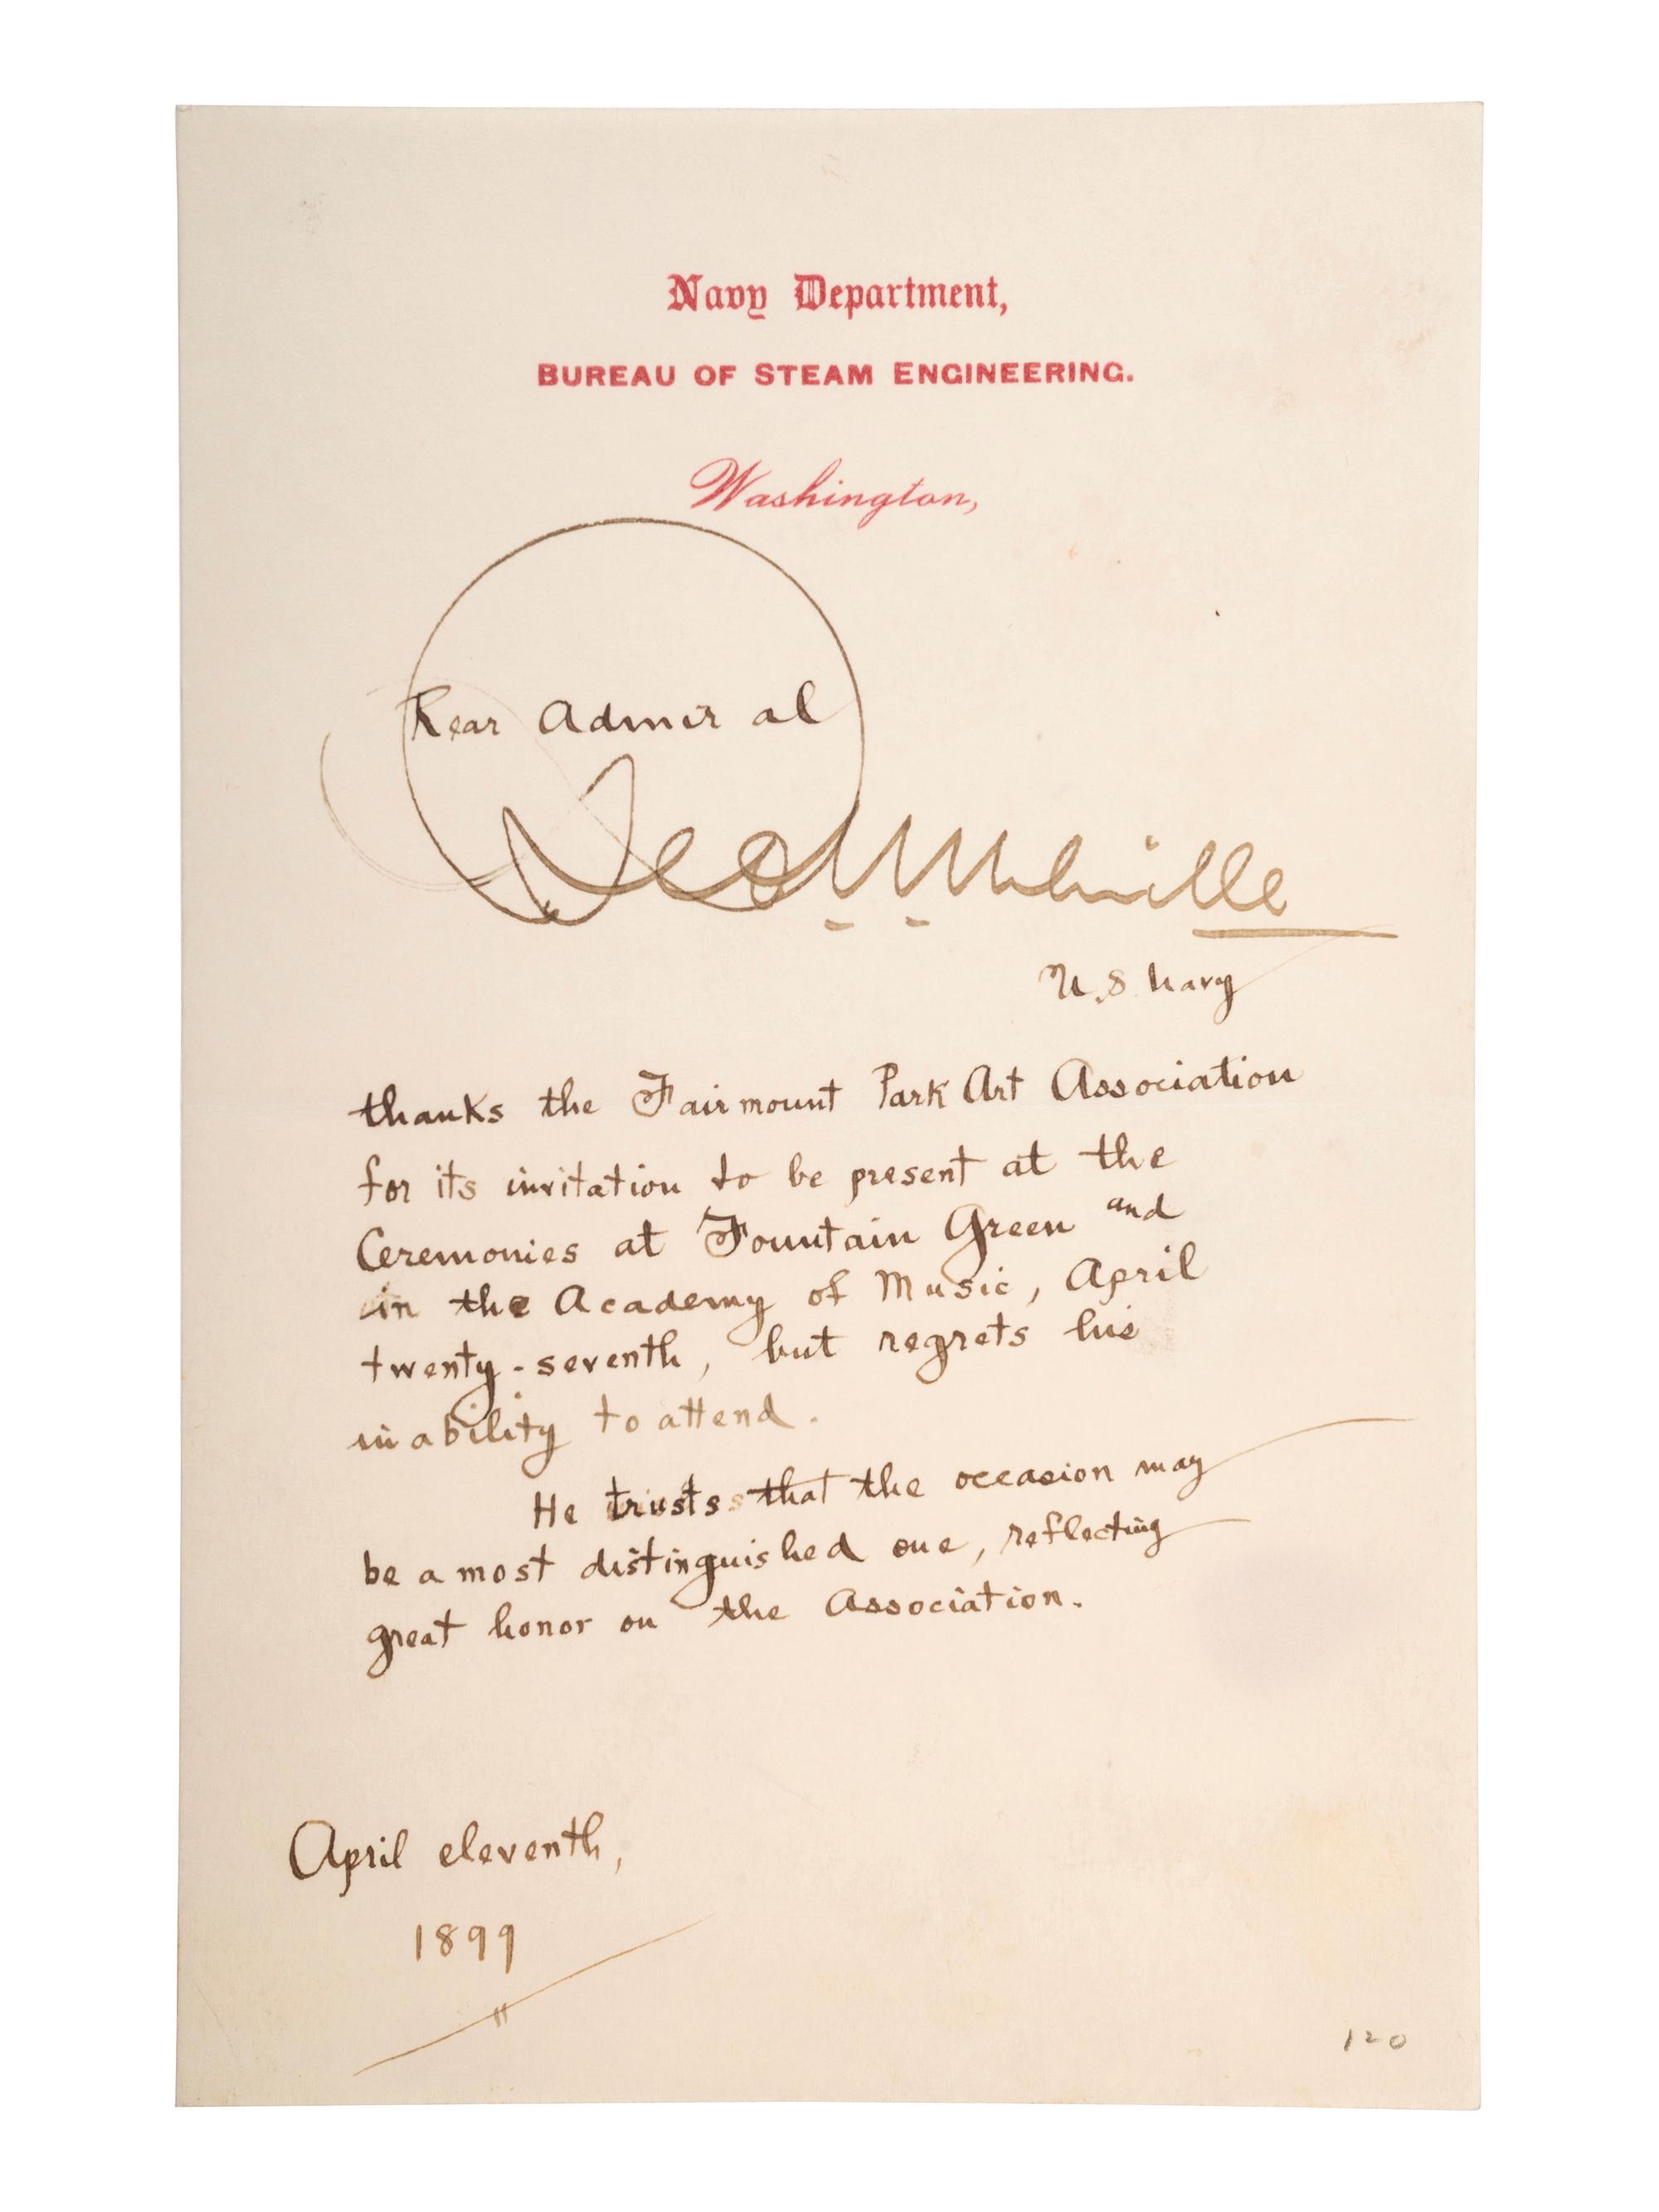 Navy Department,
BUREAU OF STEAM ENGINEERING.
Washington,
Rear Admiral
Geo W Melville
U.S. Navy
thanks the Fairmount Park Art Association
for its invitation to be present at the
Ceremonies at Fountain Green and
in the Academy of Music, April
twenty-seventh, but regrets his
inability to attend.
He trusts that the occasion may
be a most distinguished one, reflecting
great honor on the Association.
April eleventh,
1899
120